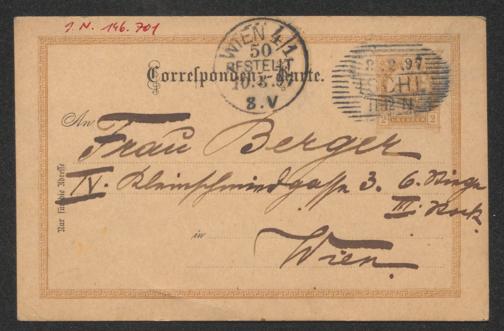 J.N. 146.701
WIEN 4/1
50
BESTELLT
8.V
8.97
ISCHL
Correspondenz-Karte.
2 2
An Frau Berger
IV. Kleinschmiedgasse 3. 6. Stiege
III. Stock
Nur für die Adresse
in Wien.